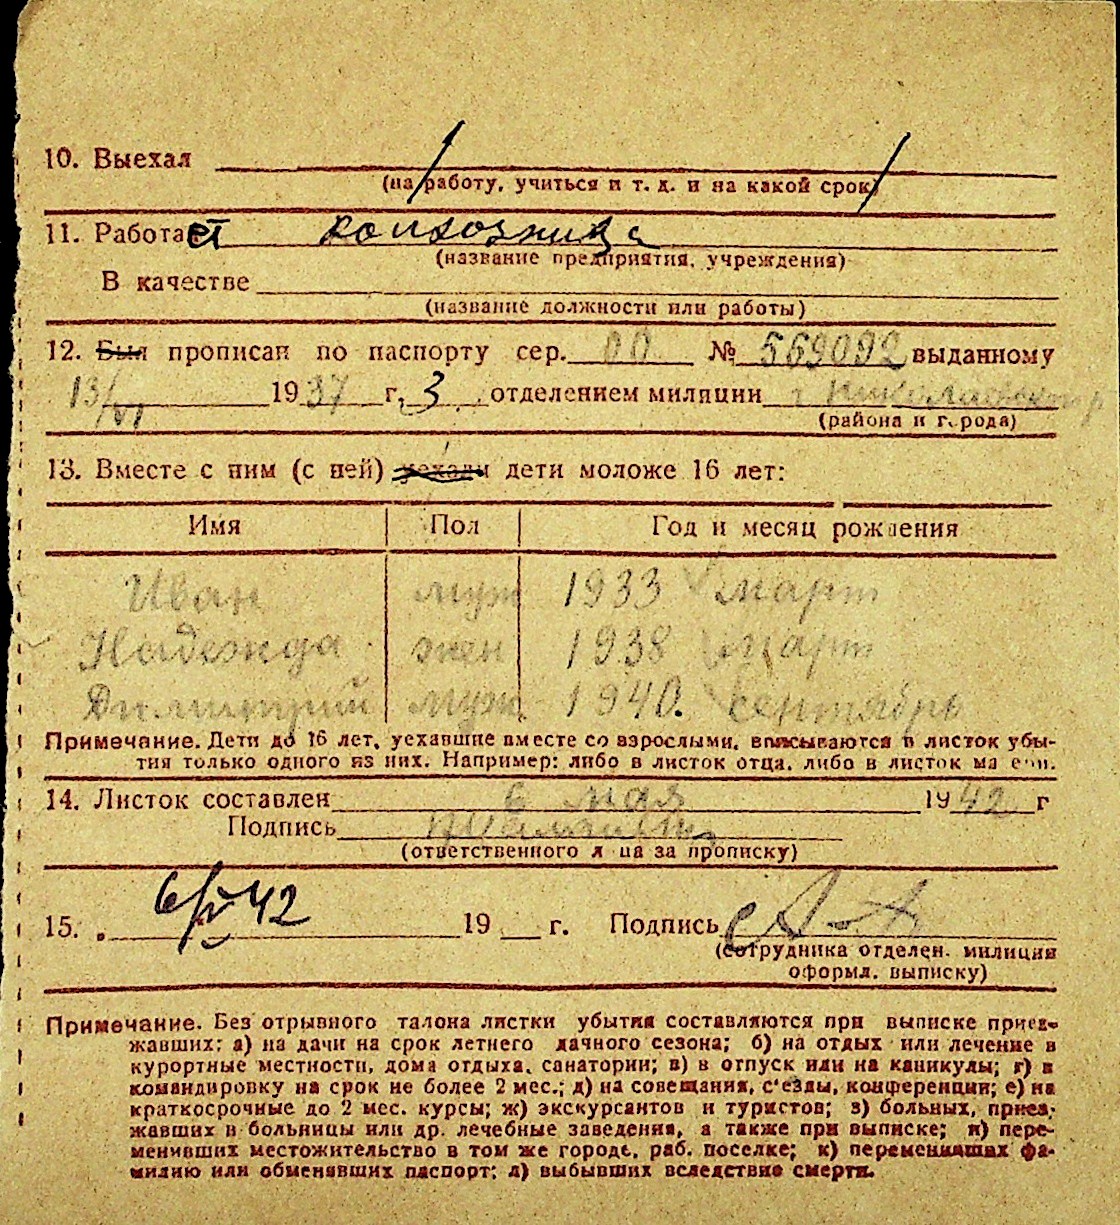 10. Выехал
(на работу, учиться и т. д. и на какой срок)
11. Работает колхозница
(название предприятия, учреждения)
В качестве
(название должности или работы)
12. Был прописан по паспорту сер. № 569092 выданному
13/VI 1937 г. 3 отделением милиции г
(района и города)
13. Вместе с ним (с ней) уехали дети моложе 16 лет:
Имя Пол Год и месяц рождения
Иван муж 1933 март
Надежда жен 1938 март
Димитрий муж 1940. сентябрь
Примечание. Дети до 16 лет, уехавшие вместе со взрослыми, вписываются в листок убы-
тия только одного из них. Например: либо в листок отца, либо в листок матери.
14. Листок составлен 6 мая 1942 г
Подпись
(ответственного лица за прописку)
15. 6/V 42 19 г. Подпись
(сотрудника отделен. милиции
оформл. выписку)
Примечание. Без отрывного талона листки убытия составляются при выписке приез-
жавших: а) на дачи на срок летнего дачного сезона; б) на отдых или лечение в
курортные местности, дома отдыха, санатории; в) в отпуск или на каникулы; г) в
командировку на срок не более 2 мес.; д) на совещания, с'езды, конференции; е) на
краткосрочные до 2 мес. курсы; ж) экскурсантов и туристов; з) больных, приез-
жавших в больницы или др. лечебные заведения, а также при выписке; и) пере-
менивших местожительство в том же городе, раб. поселке; к) переменивших фа-
милию или обменявших паспорт; л) выбывших вследствие смерти.